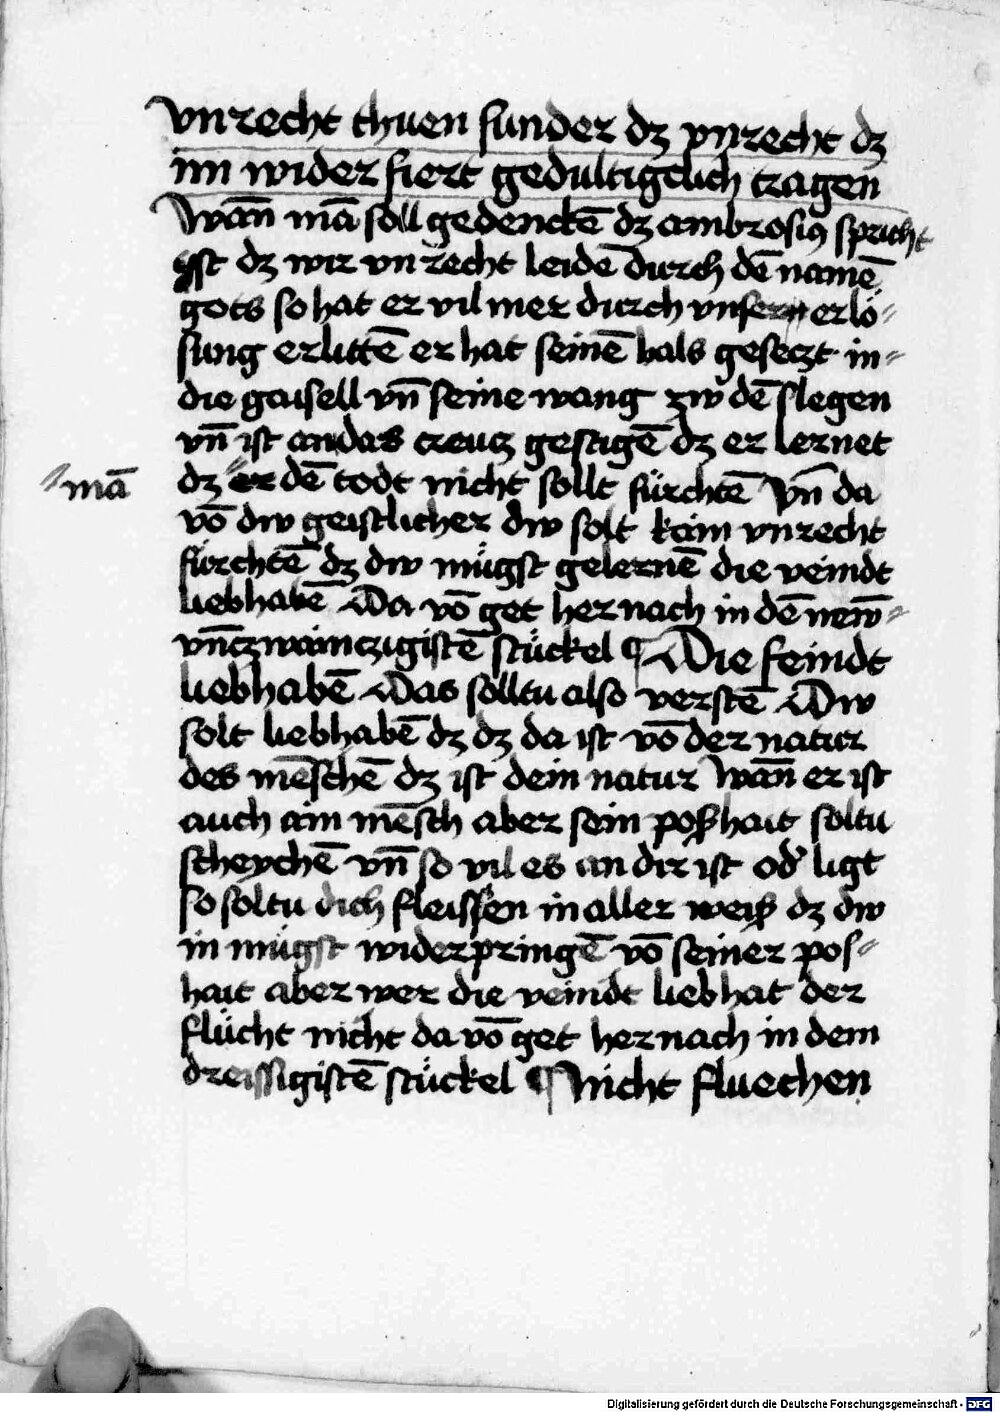 vnrecht thuen sunder dʒ vnrecht dʒ
im widerfiert gedultigclich tragen
Wan̄ mā soll gedenckē dʒ ambrosiꝰ spricht
ist dʒ wir vnrecht leidē durch dē namē
gots so hat er vil mer durch vnsern erlö⸗
sung erlittē er hat seinē hals geseczt in⸗
die gaisell vn̄ seine wang zw dē slegen
vn̄ ist an das creucz gestigē dʒ er lernet
⸗mā
dʒ er dē todt nicht sollt fürchtē Vn̄ da
vō dw geistlicher dw solt kein vnrecht
fürchtē dʒ dw mügst gelernē die veindt
liebhabē Da vō get hernach in dē new̄⸗
vn̄czwainczigistē stückel ¶ Die feindt
liebhabē Das solltu also verstē Dw
solt liebhabē dʒ dʒ da ist vō der natur
des mēschē dʒ ist dein natur Wan̄ er ist
auch ain mēsch aber sein poßhait soltu
scheychē vn̄ so vil es an dir ist od' ligt
so soltu dich fleissen in aller weiß dʒ dw
in mügst widerpringē vō seiner pos⸗
hait aber wer die veindt liebhat der
flücht nicht da vō get hernach in dem
dreissigistē stückel ¶ Nicht fluechen
Digitalisierung gefördert durch die Deutsche Forschungsgemeinschaft - DFG